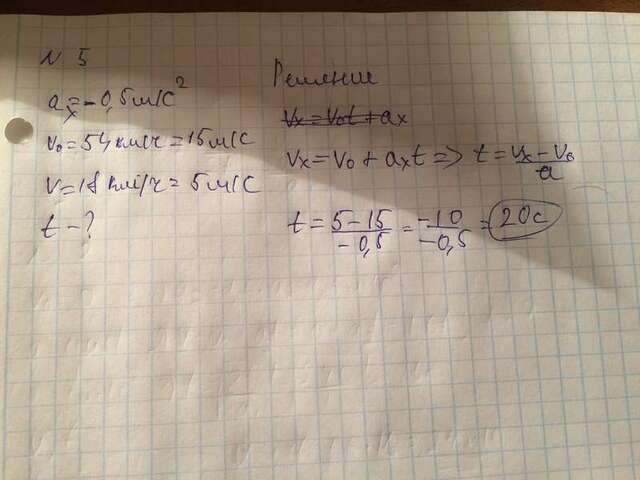 N 5
aₓ=-0,5м/с²
v₀=54км/ч=15м/с
v=18км/ч=5м/с
t-?
Решение
vₓ=v₀t+aₓ
vₓ=v₀+aₓt=> t=vₓ-v₀/a
t=5-15/-0,5=-10/-0,5=20с